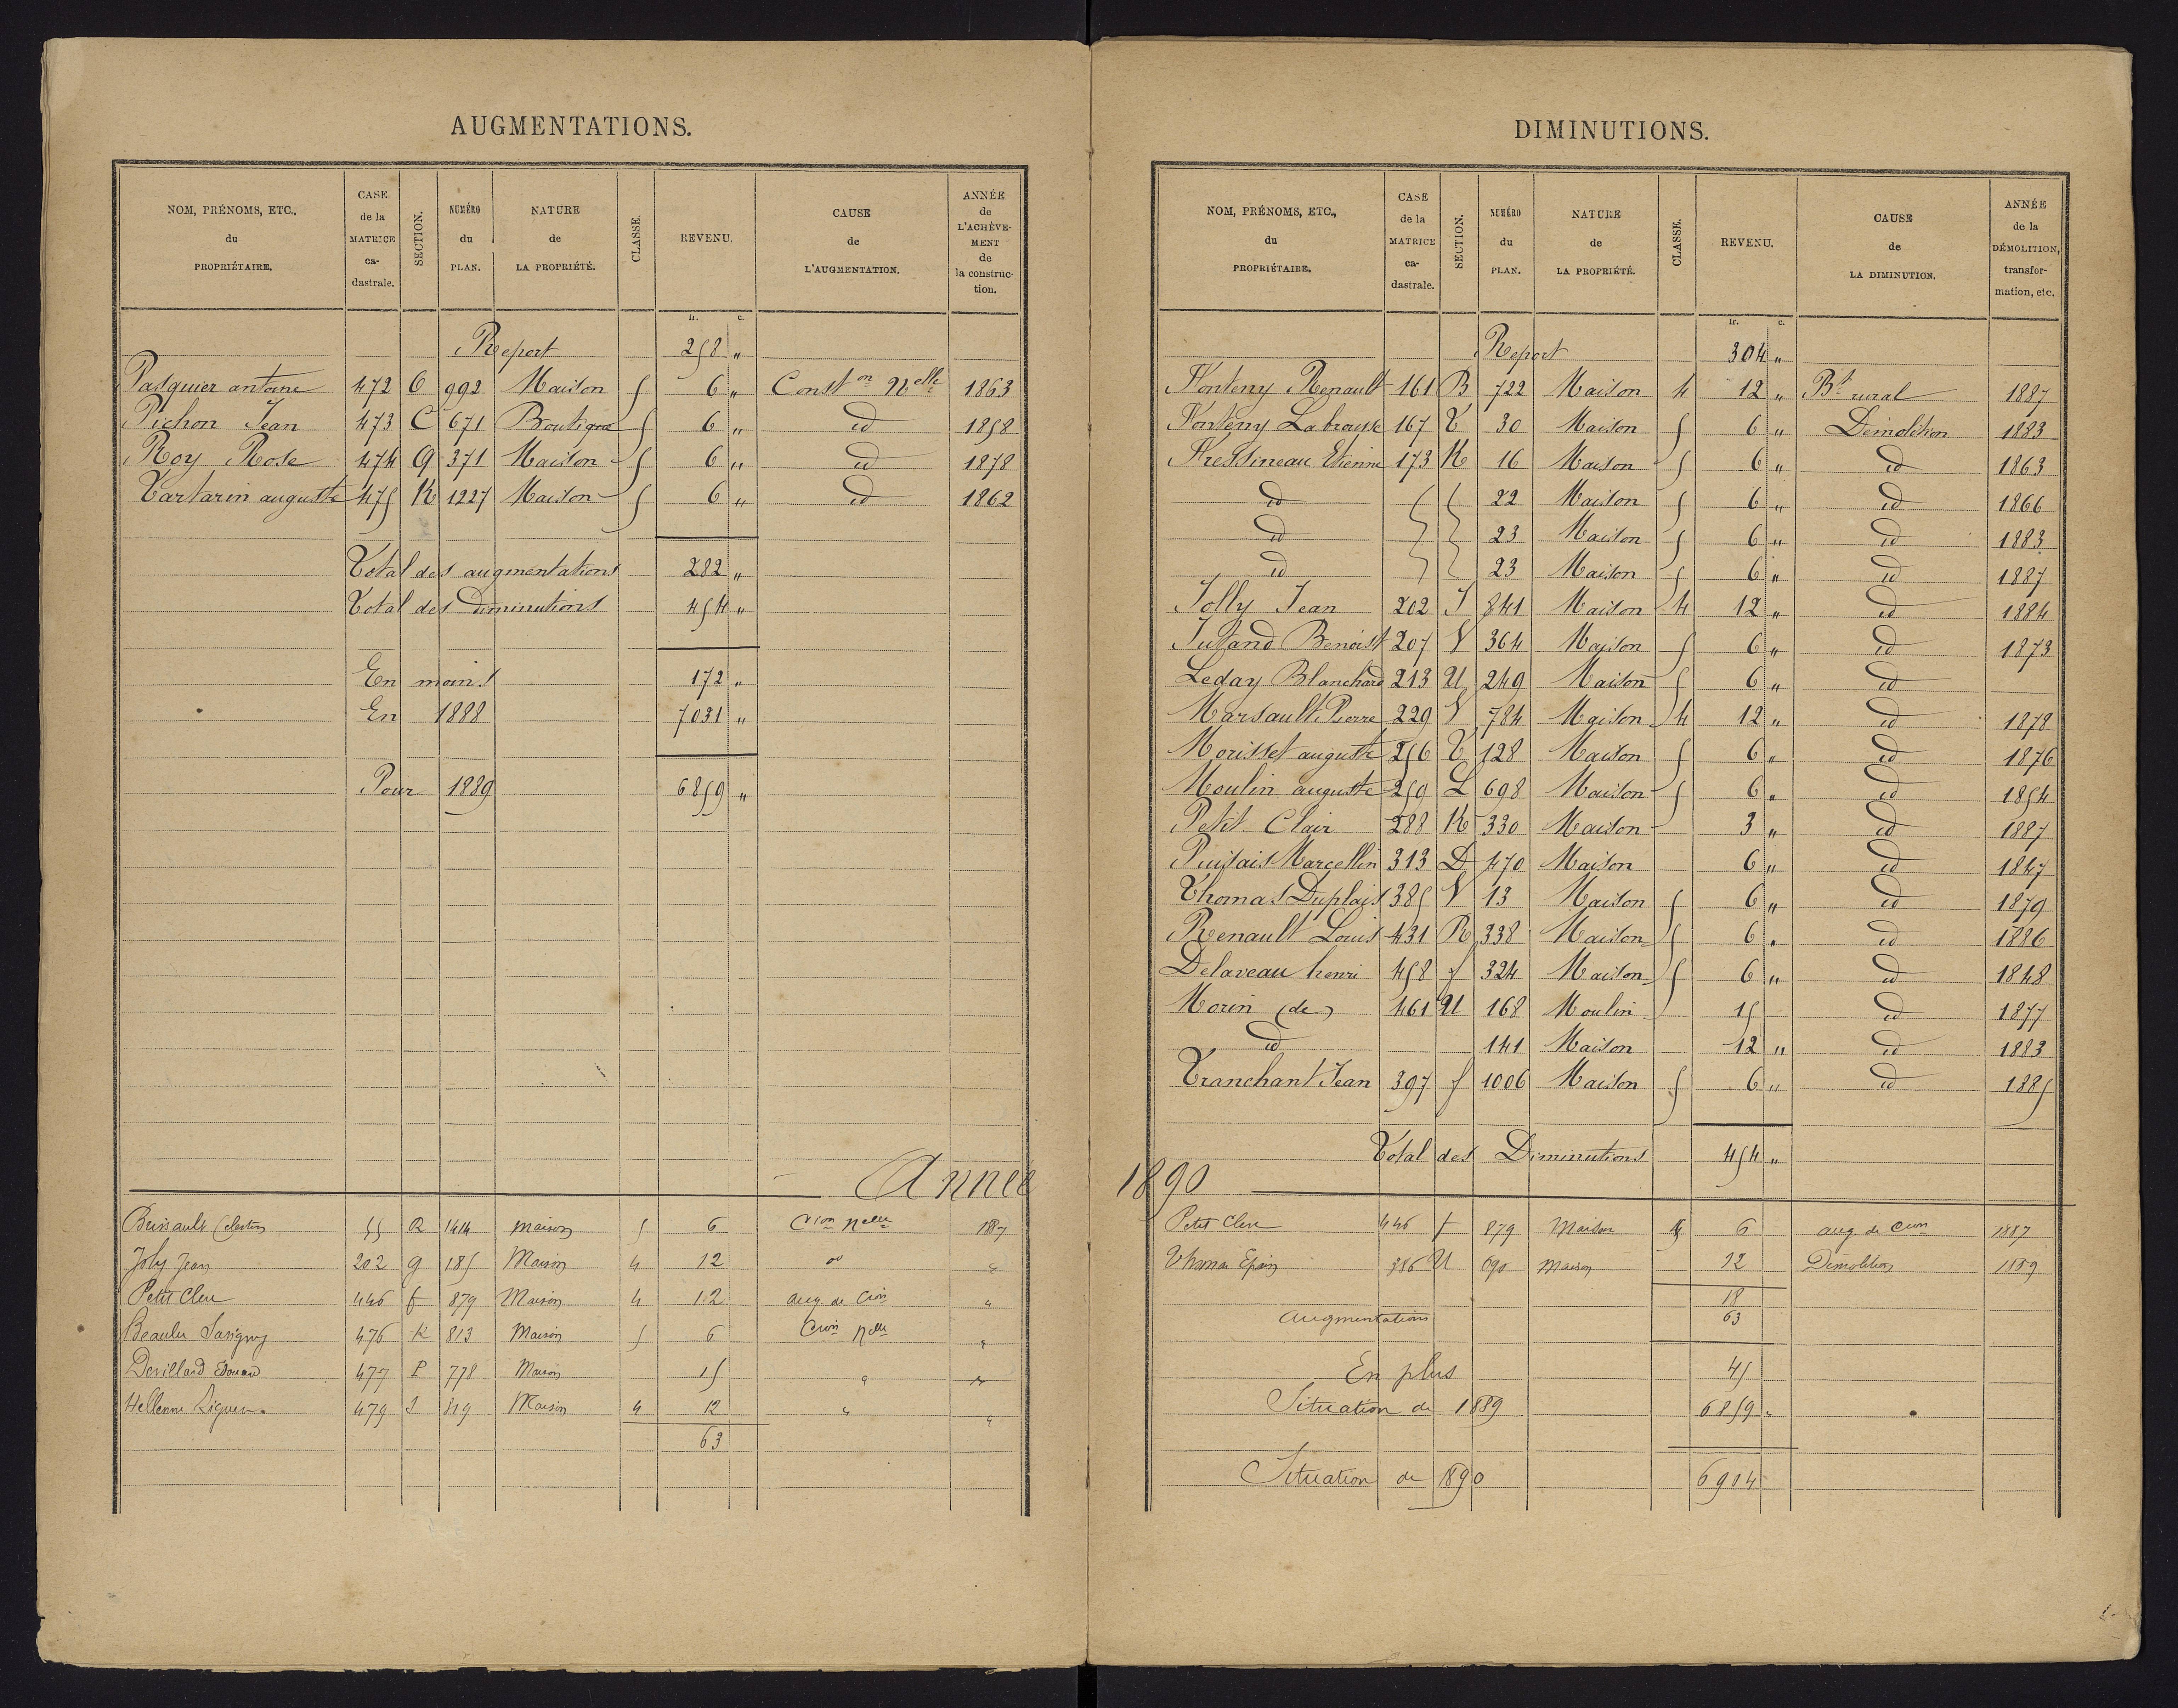 AUGMENTATIONS.
NOM, PRÉNOMS, ETC., du PROPRIÉTAIRE. CASE de la MATRICE ca-dastrale. SECTION. NUMÉRO du PLAN. NATURE de LA PROPRIÉTÉ. CLASSE. REVENU. CAUSE de L'AUGMENTATION. ANNÉE de L'ACHÈVE-MENT de la construc-tion.
fr. c.
Report 258 "
Pasquier antoine 472 O 992 Maison 5 6 " Const on Nelle 1863
Pichon Jean 473 C 671 Boutique 5 6 " id 1858
Roy Rose 474 G 371 Maison 5 6 " id 1878
Tartarin auguste 475 K 1227 Maison 5 6 " id 1862
Total des augmentations 282 "
Total des Diminutions 454 "
En moins 172 "
En 1888 7031 "
Pour 1889 6859 "
Année
55 R 1414 maison 5 6 Cion nelle 1887
Joly Jean 202 g 185 Maison 4 12 "
Petit Clerc 446 f 879 Maison 4 12 aug. de Cion "
Beaulu Savigny 476 K 813 Maison 5 6 Cion nelle "
Devillard Edouard 477 P 778 Maison 15 " "
479 J 819 Maison 4 12 " "
63
DIMINUTIONS.
NOM, PRÉNOMS, ETC., du PROPRIÉTAIRE. CASE de la MATRICE ca-dastrale. SECTION. NUMÉRO du PLAN. NATURE de LA PROPRIÉTÉ. CLASSE. REVENU. CAUSE de LA DIMINUTION. ANNÉE de la DÉMOLITION, transfor-mation, etc.
fr. c.
Report 304 "
Fonteny Renault 161 B 722 Maison 4 12 " Bt rural 1887
Fonteny Labrousse 167 T 30 Maison 5 6 " Démolition 1883
Fressineau Etienne 173 K 16 Maison 5 6 " id 1863
id 22 Maison 5 6 " id 1866
id 23 Maison 5 6 " id 1883
id 23 Maison 5 6 " id 1887
Jolly Jean 202 J 841 Maison 4 12 " id 1884
Jutand Benoist 207 V 364 Maison 5 6 " id 1873
Leday Blanchard 213 U 249 Maison 5 6 " id
Marsault Pierre 229 V 784 Maison 4 12 " id 1878
Morisset auguste 256 T 128 Maison 5 6 " id 1876
Moulin auguste 259 L 698 Maison 5 6 " id 1854
Petit Clair 288 K 330 Maison 3 " id 1887
Puisais Marcellin 313 D 470 Maison 6 " id 1847
Thomas Duplais 385 V 13 Maison 5 6 " id 1879
Renault Louis 431 R 338 Maison 5 6 " id 1886
Delaveau henri 458 f 324 Maison 5 6 " id 1848
Morin (de) 461 U 168 Moulin 15 id 1877
id 141 Maison 12 " id 1883
Tranchant Jean 397 f 1006 Maison 5 6 " id 1885
Total des Diminutions 454 "
1890
Petit Clerc 446 f 879 Maison 6 aug. de Cion 1887
Thomas Epain 386 U 690 maison 12 Démolition 1889
18
Augmentations 63
En plus 45
Situation de 1889 6859 "
Situation de 1890 6904